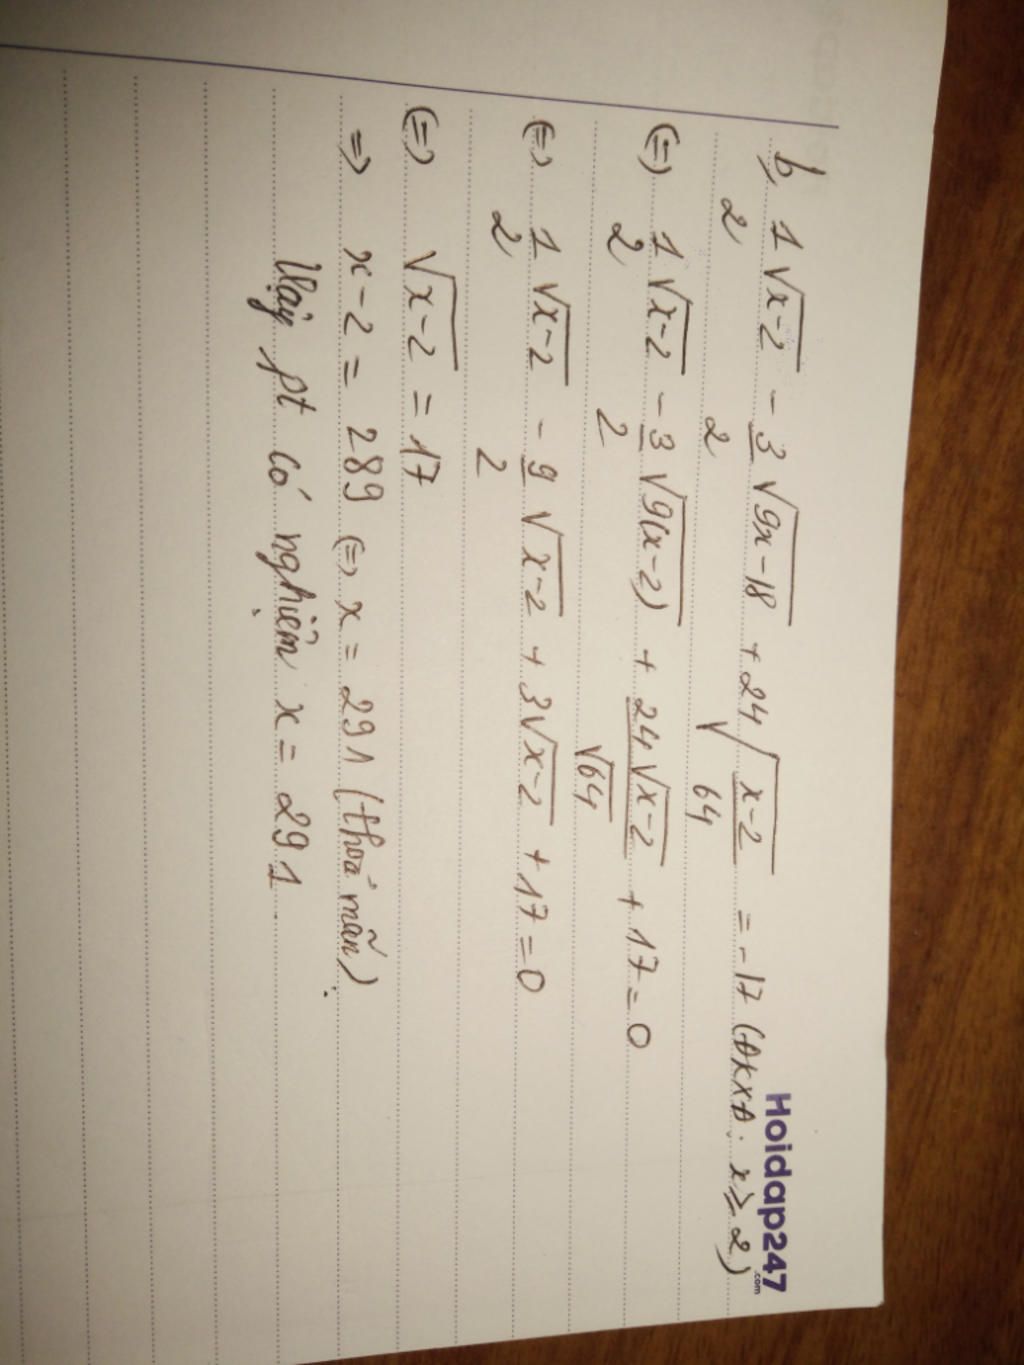 b, 1/2 √(x-2) - 3/2 √(9x-18) + 24 √((x-2)/64) = -17 (ĐKXĐ: x ≥ 2)
(=) 1/2 √(x-2) - 3/2 √(9(x-2)) + 24√(x-2)/√64 + 17 = 0
(=) 1/2 √(x-2) - 9/2 √(x-2) + 3√(x-2) + 17 = 0
(=) √(x-2) = 17
=) x-2 = 289 (=) x = 291 (thoả mãn).
Vậy pt có nghiệm x = 291.
Hoidap247.com